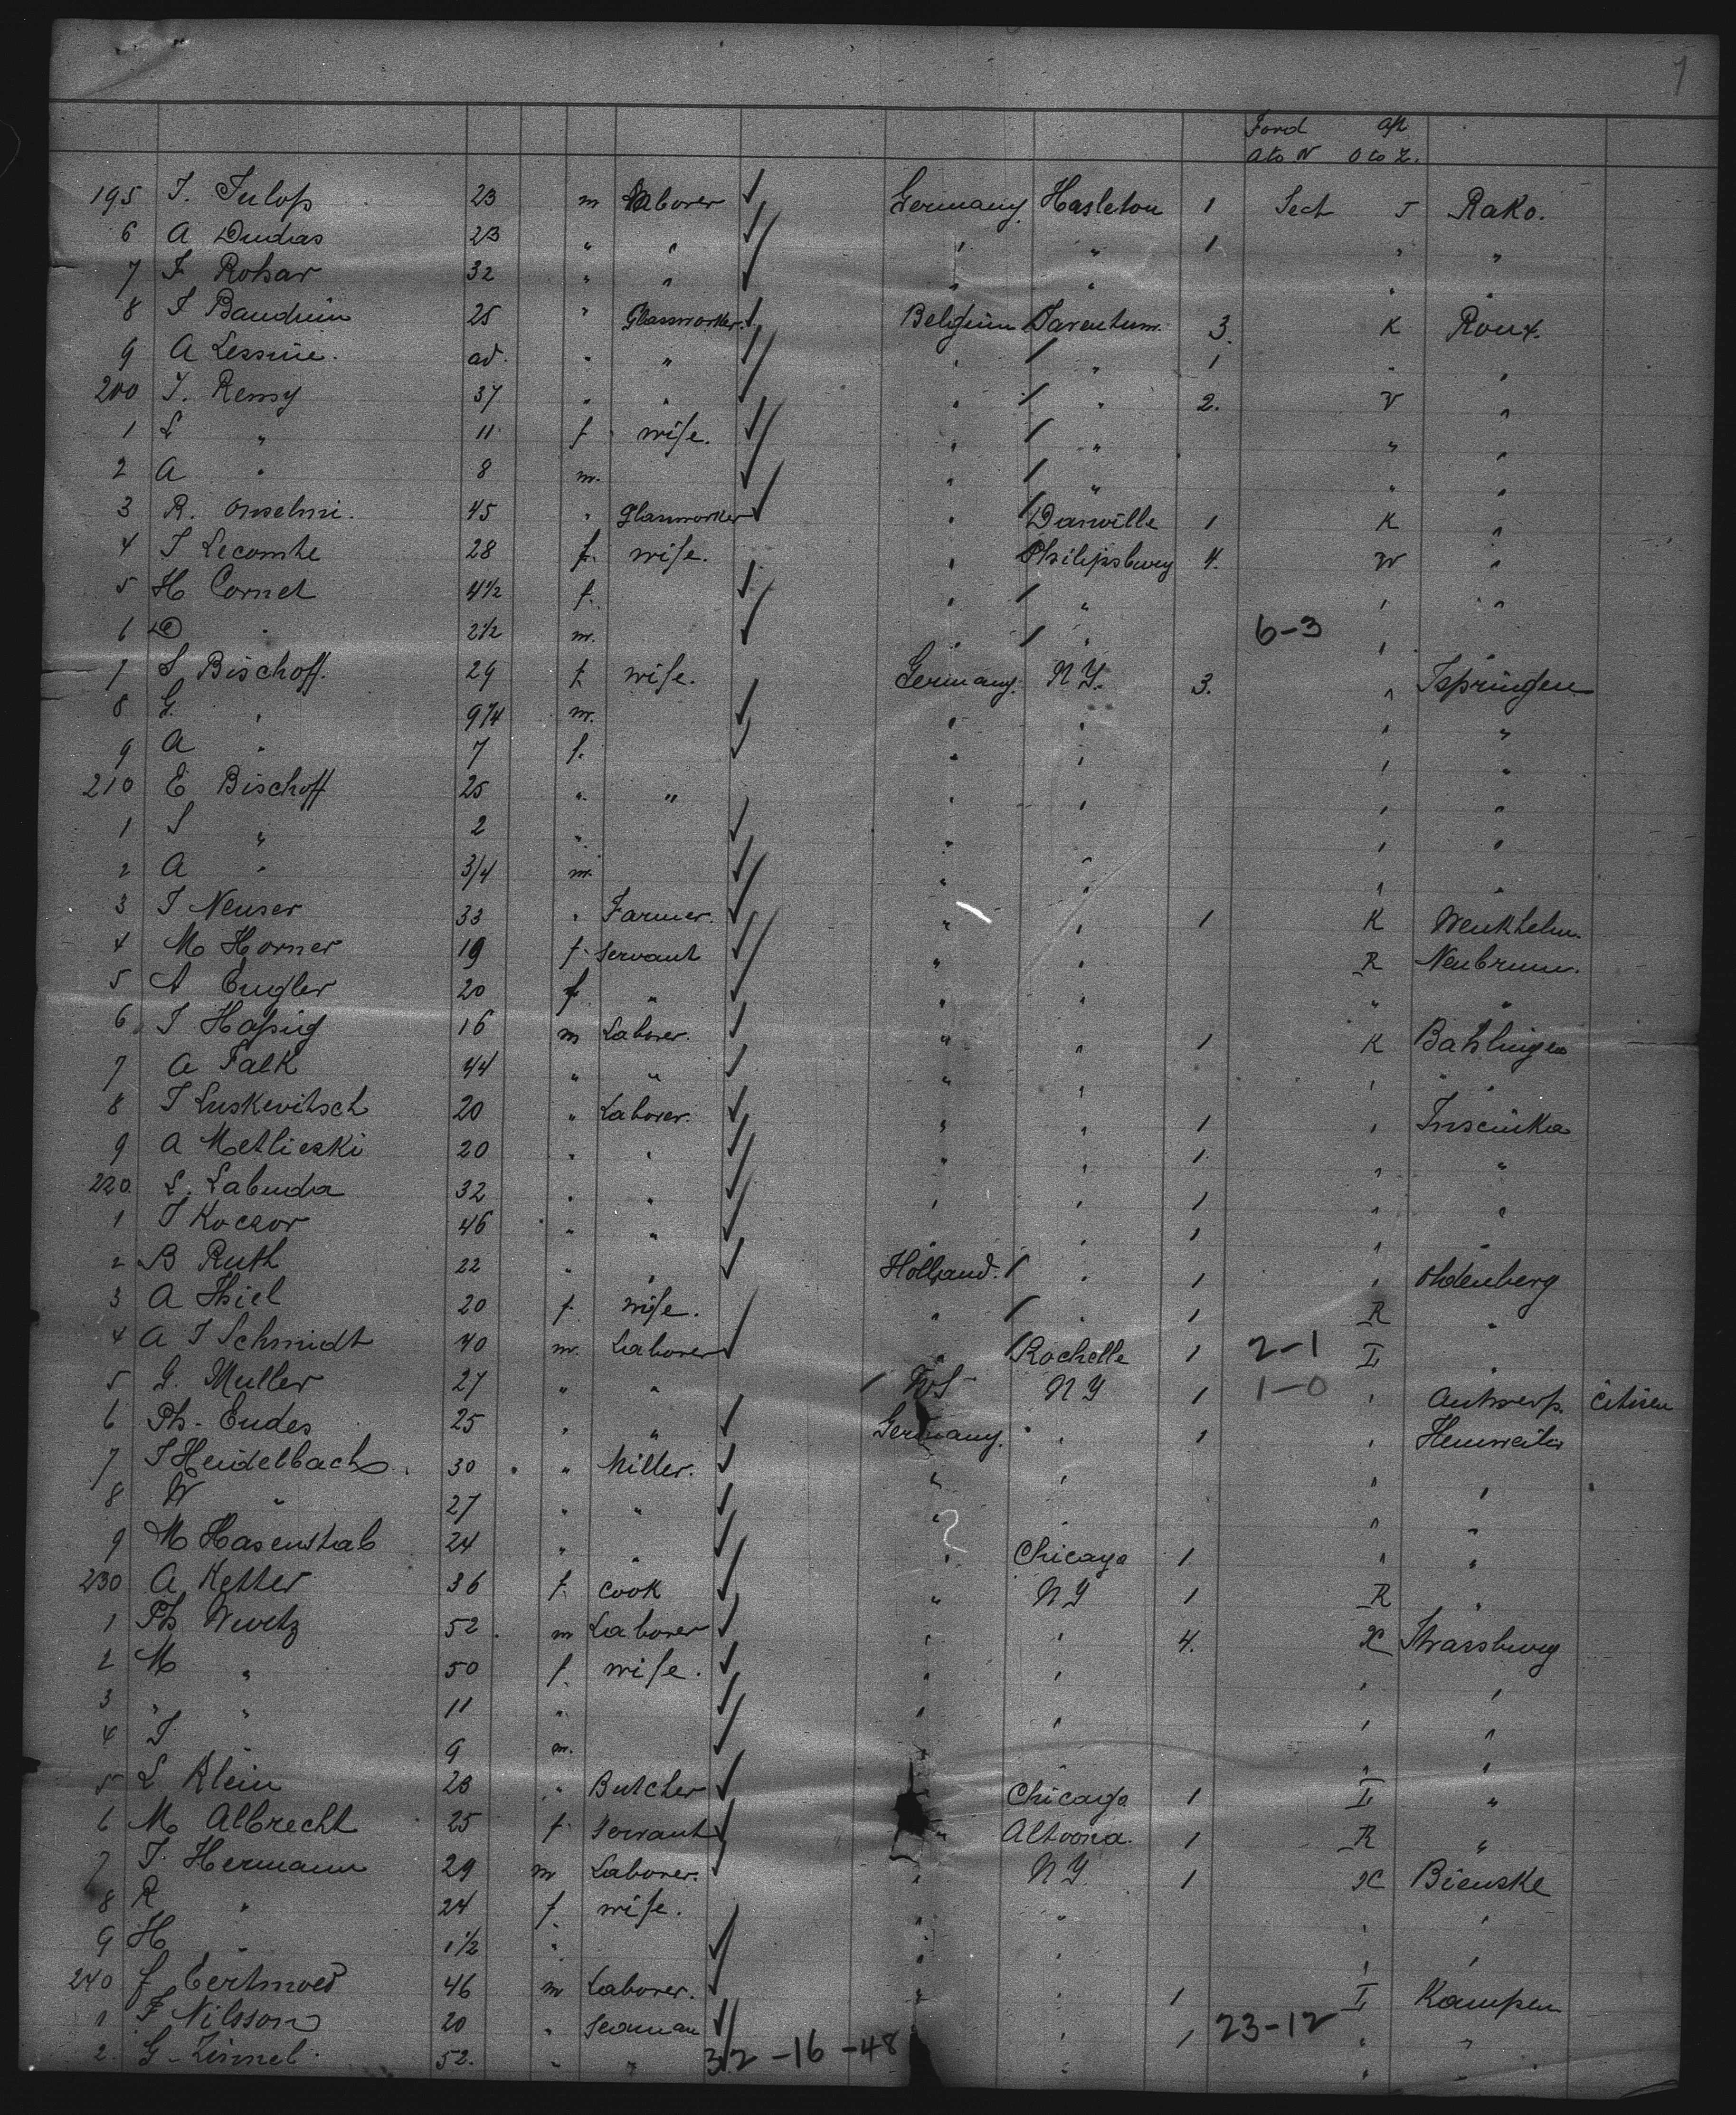 7
Forw'd Aft
A to N O to Z.
195 J. Julop 23 m Laborer ✓ Germany. Hasleton 1 Sect J Rako.
6 A Dudas 23 " " ✓ " " 1 " "
7 F Rohar 32 " " ✓ " " " "
8 J Bauduin 25 " Glassworker. ✓ Belgium Tarentum. 3. K Roux.
9 A Lessine. ad. " " ✓ " " 1 " "
200 J. Remy 37 " " ✓ " " 2. V "
1 L " 11 f wife. ✓ " " " "
2 A " 8 m. ✓ " " " "
3 R. Onselmi. 45 " Glassworker ✓ " Danville 1 K "
4 J Lecomte 28 f. wife. " Philipsburg 4. W "
5 H Cornet 4 1/2 f. ✓ " " " "
6 D " 2 1/2 m. ✓ " " 6-3 " "
7 S Bischoff. 29 f. wife. Germany. N Y. 3. " Ispringen
8 G. " 9 3/4 m. ✓ " " " "
9 A " 7 f. ✓ " " " "
210 E Bischoff 25 " " " " " "
1 S " 2 " ✓ " " "
2 A " 3/4 m. ✓ " " " "
3 J Neuser 33 " Farmer. ✓ " " 1 K Wenkheim
4 M Horner 19 f. Servant ✓ " " R Neubrunn.
5 A Engler 20 f. " ✓ " " " "
6 J Hassig 16 m Laborer. ✓ " " 1 K Bahlingen
7 A Falk 44 " " ✓ " " " "
8 J Luskevitsch 20 " Laborer. ✓ " " 1 "
9 A Metlieski 20 " " ✓ " " 1 " "
220 L. Labuda 32 " " ✓ " " 1 " "
1 J Koczor 46 " " ✓ " " 1 " "
2 B Ruth 22 " " ✓ Holland. " 1 " Oldenberg
3 A Thiel 20 f. wife. " " 1 R "
4 A J Schmidt 40 m. Laborer ✓ " Rochelle 1 2-1 I "
5 G. Muller 27 " " US N Y 1 1-0 " Antwerp. Citisen
6 Ph. Endes 25 " " ✓ Germany. " 1 " Hennweiler
7 J Heidelbach 30 " Miller. ✓ " " " "
8 W " 27 " " ✓ " " "
9 M Hasenstab 24 " " ✓ " Chicago 1 " "
230 A Ketter 36 f. Cook ✓ " N Y 1 R "
1 Ph Wurtz 52. m Laborer ✓ " " 4. X Strassburg
2 M " 50 f. wife. ✓ " " " "
3 " " 11 " ✓ " " " "
4 J 9 m. ✓ " "
5 L Klein 23 " Butcher ✓ Chicago 1 I "
6 M Albrecht 25 f. Servant ✓ " Altoona. 1 R "
7 J. Hermann 29 m Laborer. ✓ " N Y 1 X Bienske
8 R " 24 f wife. " " " "
9 H " 1 1/2 " ✓ " " " "
240 f Eertmoed 46 m Laborer. ✓ " " 1 I Kampen
1 F Nilsson 20 " Seaman ✓ " 1 23-12 " "
2. G. Zimmel 52. " " 32 -16 -48 " " "